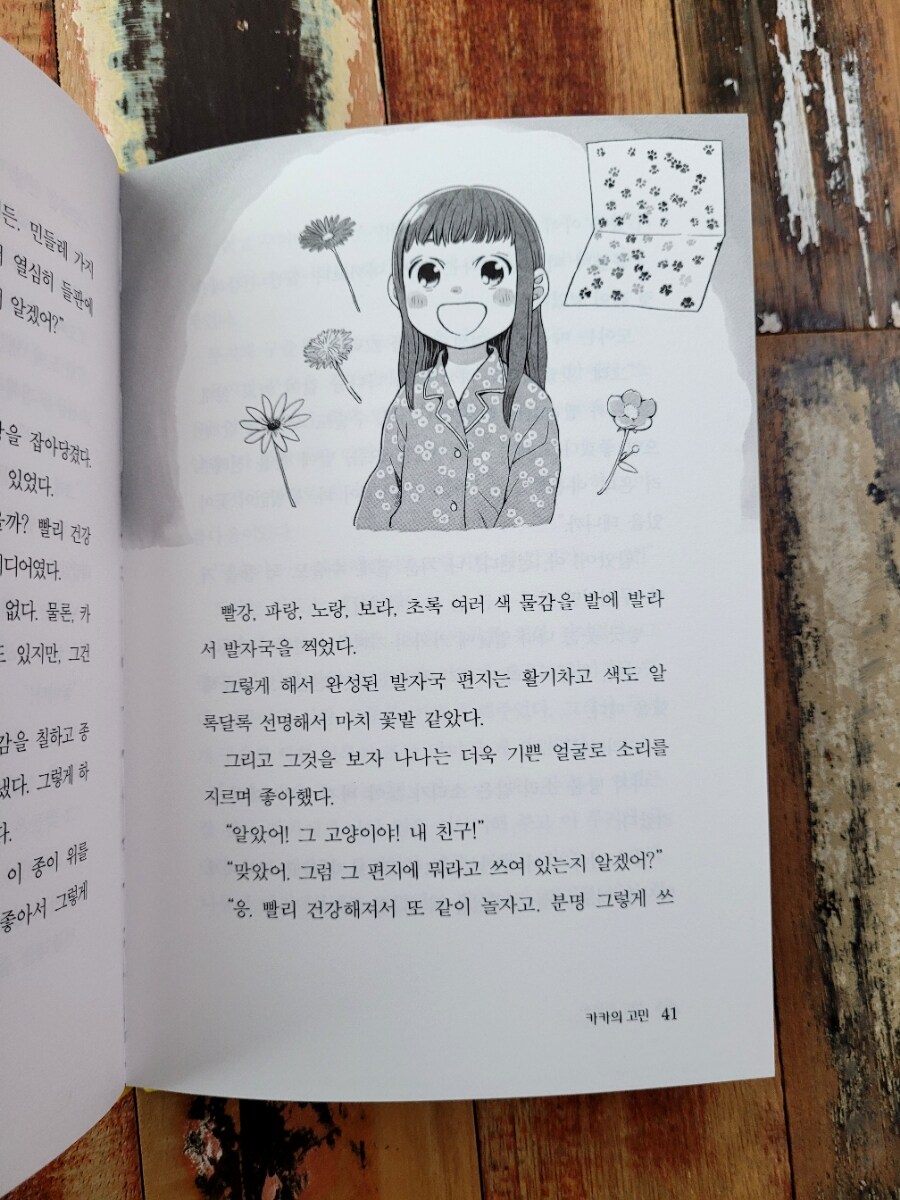 든. 민들레 가지
열심히 들판에
알겠어?”
을 잡아당겼다.
있었다.
까? 빨리 건강
디어였다.
없다. 물론, 카
있지만, 그건
감을 칠하고 종
냈다. 그렇게 하
다.
이 종이 위를
좋아서 그렇게
빨강, 파랑, 노랑, 보라, 초록 여러 색 물감을 발에 발라
서 발자국을 찍었다.
그렇게 해서 완성된 발자국 편지는 활기차고 색도 알
록달록 선명해서 마치 꽃밭 같았다.
그리고 그것을 보자 나나는 더욱 기쁜 얼굴로 소리를
지르며 좋아했다.
“알았어! 그 고양이야! 내 친구!”
“맞았어. 그럼 그 편지에 뭐라고 쓰여 있는지 알겠어?”
“응. 빨리 건강해져서 또 같이 놀자고. 분명 그렇게 쓰
카카의 고민 41